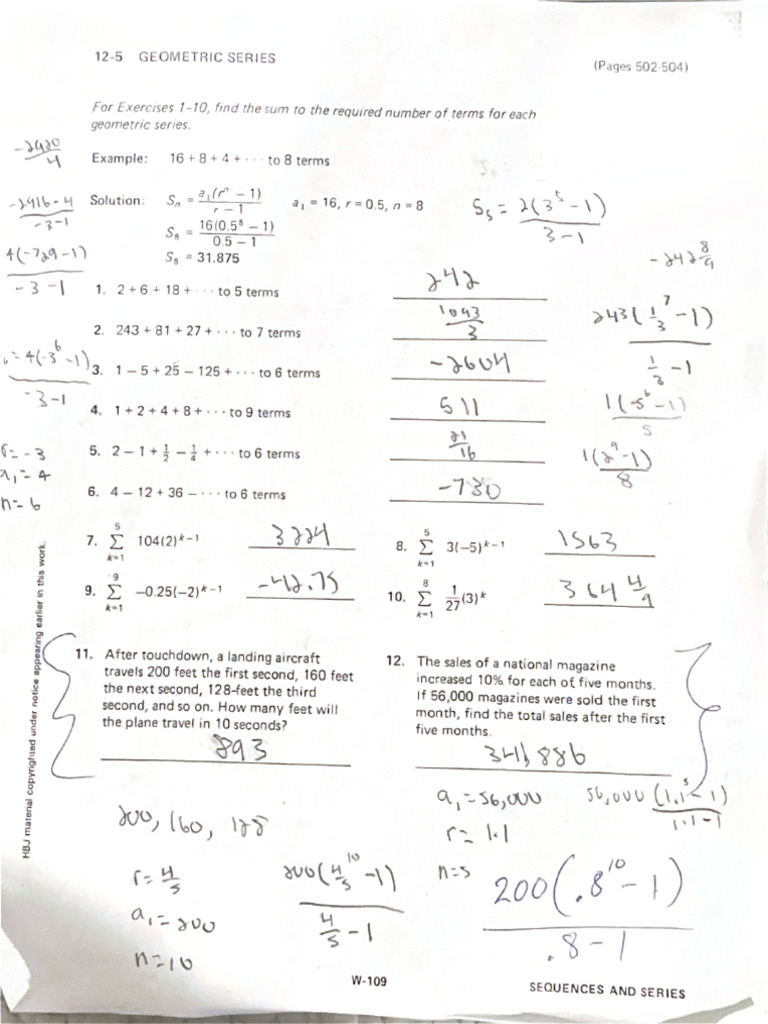 12-5 GEOMETRIC SERIES
(Pages 502-504)
For Exercises 1-10, find the sum to the required number of terms for each
geometric series.
Example: 16 + 8 + 4 + · · · to 8 terms
Solution: Sₙ = a₁(rⁿ − 1) / r − 1 a₁ = 16, r = 0.5, n = 8
S₈ = 16(0.5⁸ − 1) / 0.5 − 1
S₈ = 31.875
S₅ = 2(3⁵ − 1) / 3 − 1
-2920/4
-2916-4 / -3-1
4(-729-1) / -3-1
4(-3⁶-1) / -3-1
r = -3
a₁ = 4
n = 6
-242 8/9
243(1/3⁷ - 1) / 1/3 - 1
1(-5⁶-1) / 5
1(2⁹-1) / 8
1. 2 + 6 + 18 + · · · to 5 terms 242
2. 243 + 81 + 27 + · · · to 7 terms 1093/3
3. 1 − 5 + 25 − 125 + · · · to 6 terms -2604
4. 1 + 2 + 4 + 8 + · · · to 9 terms 511
5. 2 − 1 + 1/2 − 1/4 + · · · to 6 terms 21/16
6. 4 − 12 + 36 − · · · to 6 terms -730
7. 5 Σ k=1 104(2)ᵏ⁻¹ 3224
8. 5 Σ k=1 3(−5)ᵏ⁻¹ 1563
9. 9 Σ k=1 −0.25(−2)ᵏ⁻¹ -42.75
10. 8 Σ k=1 1/27(3)ᵏ 364 4/9
11. After touchdown, a landing aircraft
travels 200 feet the first second, 160 feet
the next second, 128-feet the third
second, and so on. How many feet will
the plane travel in 10 seconds?
893
12. The sales of a national magazine
increased 10% for each of five months.
If 56,000 magazines were sold the first
month, find the total sales after the first
five months.
341,886
200, 160, 128
r = 4/5
a₁ = 200
n = 10
200(4/5¹⁰ - 1) / 4/5 - 1
a₁ = 56,000
r = 1.1
n = 5
56,000(1.1⁵ - 1) / 1.1 - 1
200(.8¹⁰ - 1) / .8 - 1
HBJ material copyrighted under notice appearing earlier in this work.
W-109
SEQUENCES AND SERIES